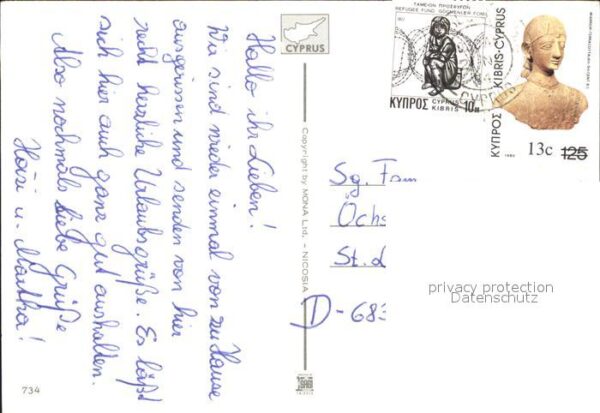 Hallo ihr Lieben!
Wir sind wieder einmal von zu Hause
ausgerissen und senden von hier
recht herzliche Urlaubsgrüße. Es läßt
sich hier auch ganz gut aushalten.
Also nochmals liebe Grüße
u. Martha!
734
CYPRUS
Copyright by MONA Ltd. - NICOSIA
ΤΑΜΕΙΟΝ ΠΡΟΣΦΥΓΩΝ
REFUGEE FUND GÖÇMENLER FONU
ΚΥΠΡΟΣ
CYPRUS
KIBRIS
10M
ΚΥΠΡΟΣ KIBRIS-CYPRUS
13c 125
Sg. Fam
Öchs
St.
D-683
privacy protection
Datenschutz